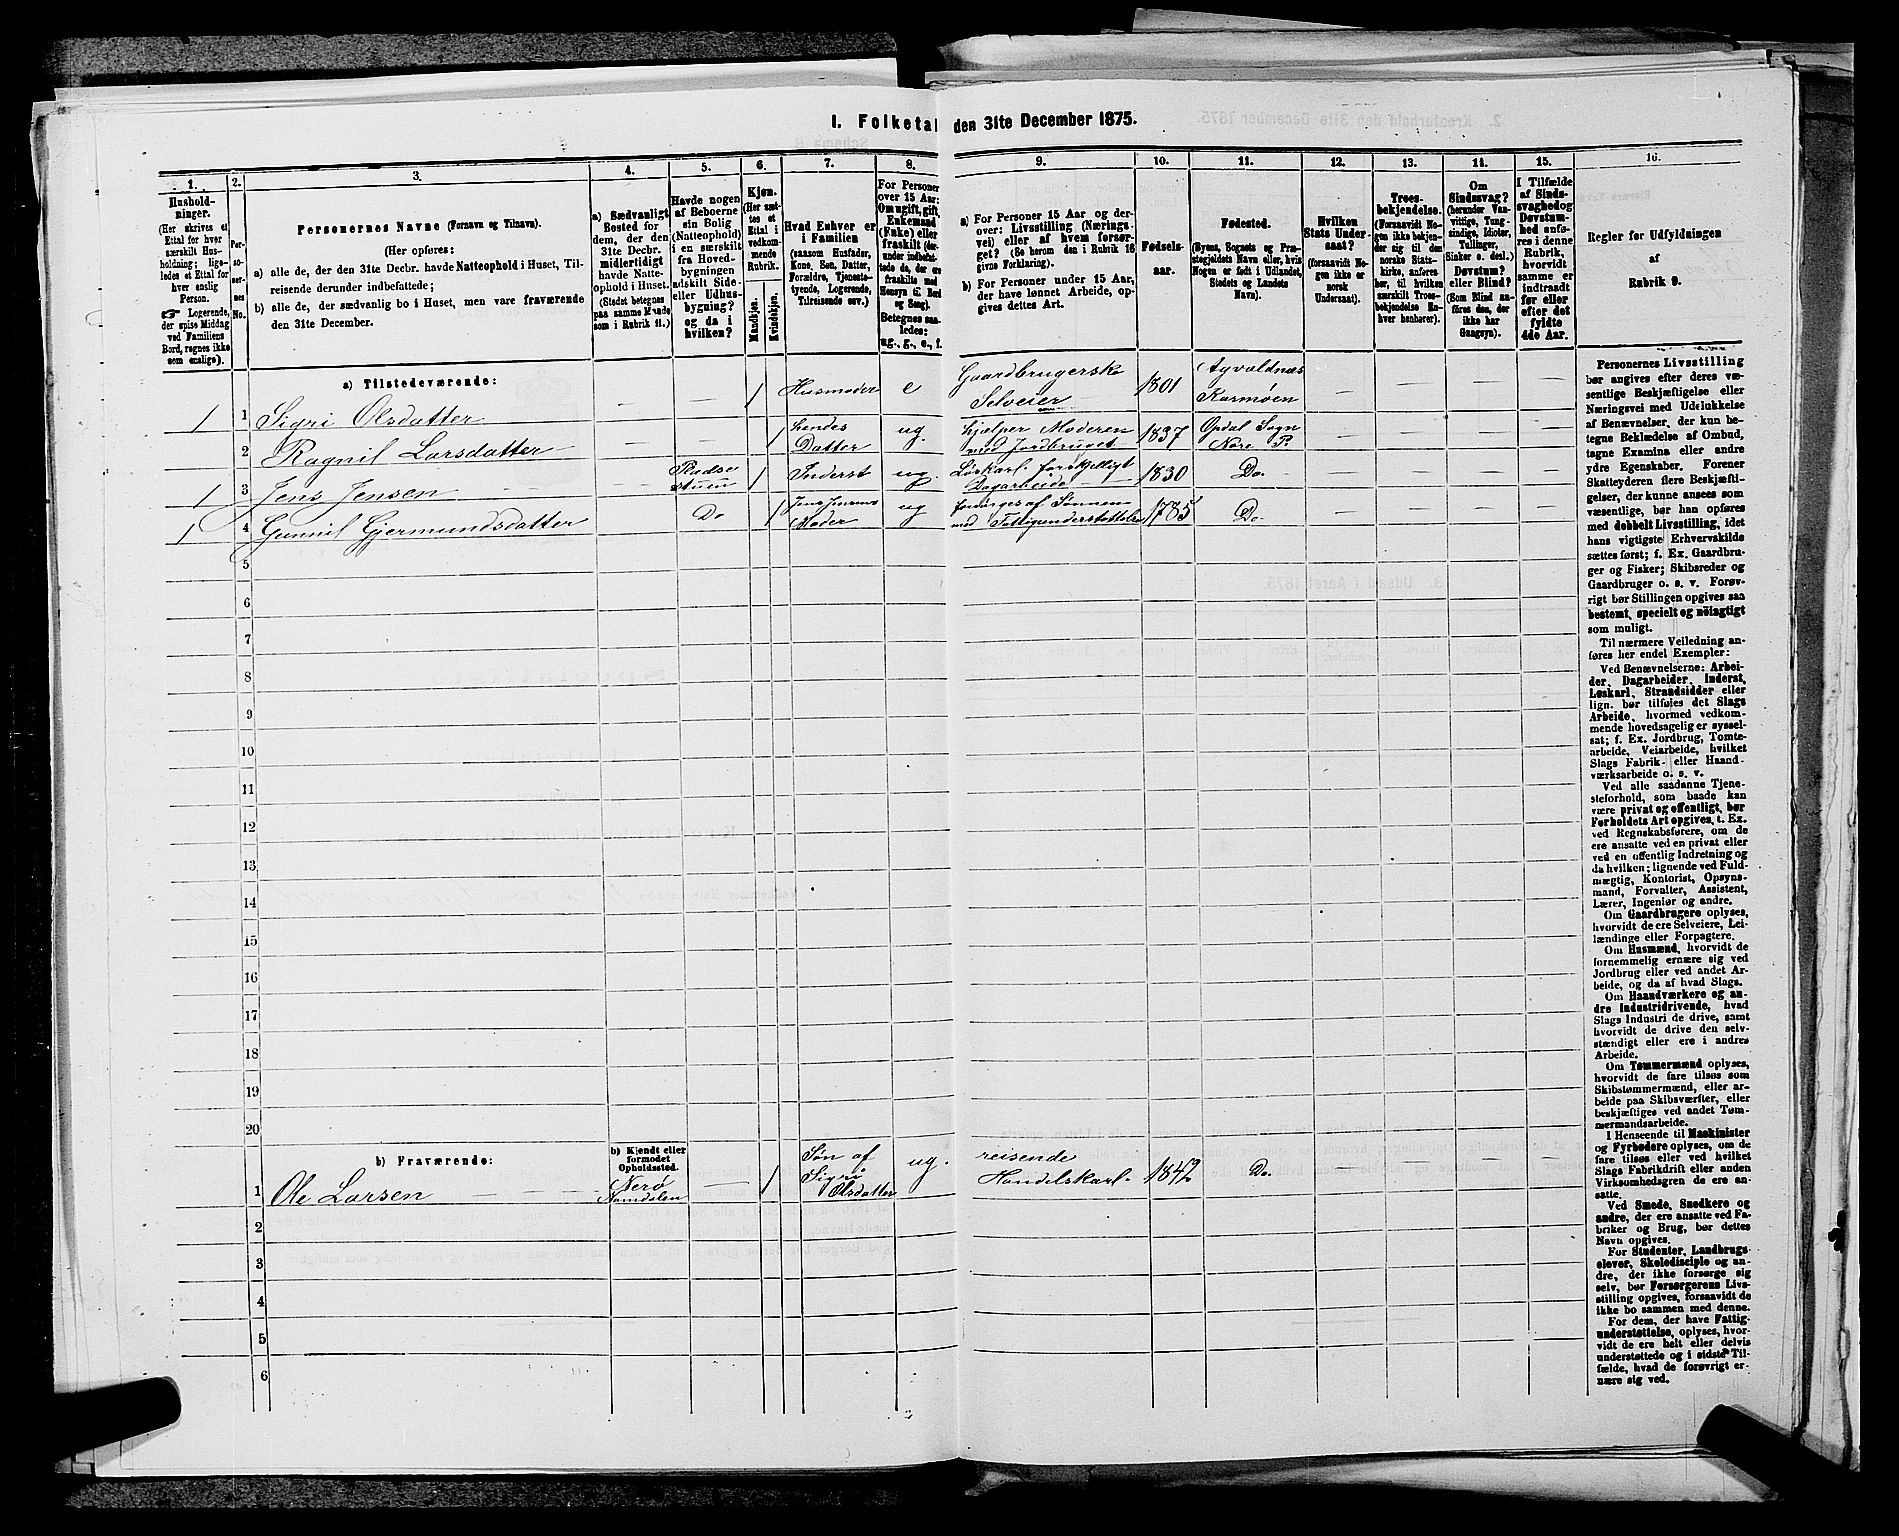 I. Folketal den 31te December 1875.
1.
Husholdninger.
(Her skrives et
Ettal for hver
særskilt Husholdning; ligeledes et Ettal for
hver enslig
Person.
☞ Logerende,
der spise Middag
ved Familiens
Bord, regnes ikke
som enslige).
2.
Personernes
No.
3.
Personernes Navne (Fornavn og Tilnavn).
(Her opføres:
a) alle de, der den 31te Decbr. havde Natteophold i Huset, Tilreisende derunder indbefattede;
b) alle de, der sædvanlig bo i Huset, men vare fraværende
den 31te December.
4.
a) Sædvanligt
Bosted for
dem, der den
31te Decbr.
midlertidigt
havde Natteophold i Huset.
(Stedet betegnes
paa samme Maade
som i Rubrik 11.)
5.
Havde nogen
af Beboerne
sin Bolig
(Natteophold)
i en særskilt
fra Hovedbygningen
adskilt Side-
eller Udhusbygning?
og da i
hvilken?
6.
Kjøn.
(Her sættes et
Ettal i
vedkommende
Rubrik.
Mandkjøn.
Kvindekjøn.
7.
Hvad Enhver er
i Familien
(saasom Husfader,
Kone, Søn, Datter,
Forældre, Tjenestetyende, Logerende,
Tilreisende osv.)
8.
For Personer
over 15 Aar:
Om ugift, gift,
Enkemand
(Enke) eller
fraskilt
Betegnes saaledes:
ug., g., e., f.
9.
a) For Personer 15 Aar og derover: Livsstilling (Næringsvei) eller af hvem forsørget? (Se herom den i Rubrik 16
givne Forklaring).
b) For Personer under 15 Aar,
der have lønnet Arbeide, opgives dettes Art.
10.
Fødselsaar.
11.
Fødested.
(Byens, Sognets og Præstegjeldets Navn eller, hvis
Nogen er født i Udlandet,
Stedets og Landets
Navn).
12.
Hvilken
Stats Undersaat?
(forsaavidt Nogen ikke er
norsk
Undersaat).
13.
Troesbekjendelse.
(Forsaavidt Nogen ikke bekjender sig til den
norske Statskirke, anføres
her, til hvilken
særskilt Troesbekjendelse Enhver henhører).
14.
Om
Sindssvag?
(herunder Vanvittige, Tungsindige, Idioter,
Tullinger,
Sinker o. desl.)
Døvstum?
eller Blind?
(Som Blind anføres den, der
ikke har
Gangsyn).
15.
I Tilfælde
af Sindssvaghed og
Døvstumhed anføres i denne
Rubrik,
hvorvidt
samme er
indtraadt
før eller
efter det
fyldte
4de Aar.
16.
Regler for Udfyldningen
af
Rubrik 9.
a) Tilstedeværende:
1 1 Sigri Olsdatter — — 1 Husmoder e Gaardbrugerske Selveier 1801 Agvaldnæs Karmøen — — — —
2 Ragnil Larsdatter — — 1 hendes Datter ug. hjælper Moderen med Jordbruget 1837 Opdal Sogn Nore P. — — — —
1 3 Jens Jensen — — Pladsestuen 1 Inderst ug. Løskarl forskjelligt Dagarbeide 1830 Do. — — — —
1 4 Gunnil Gjermundsdatter Do 1 Jens Jensens Moder ug forsørges af Sønnen med Fattigunderstøttelse 1785 Do. — — — —
5
6
7
8
9
10
11
12
13
14
15
16
17
18
19
20
b) Fraværende:
b) Kjendt eller
formodet
Opholdssted.
1 Ole Larsen — — — Nerø Namdalen — 1 Søn af Sigri Olsdatter ug. reisende Handelskarl. 1842 Do. — — — —
2
3
4
5
6
Personernes Livsstilling
bør angives efter deres væsentlige Beskjæftigelse eller
Næringsvei med Udelukkelse
af Benævnelser, der kun betegne Beklædelse af Ombud,
tagne Examina eller andre
ydre Egenskaber. Forener
Skatteyderen flere Beskjæftigelser, der kunne ansees som
væsentlige, bør han opføres
med dobbelt Livsstilling, idet
hans vigtigste Erhvervskilde
sættes først; f. Ex. Gaardbruger og Fisker; Skibsreder og
Gaardbruger o. s. v. Forøvrigt bør Stillingen opgives saa
bestemt, specielt og nöiagtigt
som muligt.
Til nærmere Veiledning anføres her endel Exempler:
Ved Benævnelserne: Arbeider, Dagarbeider, Inderst,
Løskarl, Strandsidder eller
lign. bør tilføies det Slags
Arbeide, hvormed vedkommende hovedsagelig er sysselsat; f. Ex. Jordbrug, Tomtearbeide, Veiarbeide, hvilket
Slags Fabrik- eller Haandværksarbeide o. s. v.
Ved alle saadanne Tjenesteforhold, som baade kan
være privat og offentligt, bør
Forholdets Art opgives, t. Ex.
ved Regnskabsførere, om de
ere ansatte ved en privat eller
ved en offentlig Indretning og
da hvilken; lignende ved Fuldmægtig, Kontorist, Opsynsmand, Forvalter, Assistent,
Lærer, Ingeniør og andre.
Om Gaardbrugere oplyses,
hvorvidt de ere Selveiere, Leilændinge eller Forpagtere.
Om Husmænd, hvorvidt de
fornemmelig ernære sig ved
Jordbrug eller ved andet Arbeide, og da af hvad Slags.
Om Haandværkere og andre Industridrivende, hvad
Slags Industri de drive, samt
hvorvidt de drive den selvstændigt eller ere i andres
Arbeide.
Om Tømmermænd oplyses,
hvorvidt de fare tilsøs som
Skibstømmermænd, eller arbeide paa Skibsværfter, eller
beskjæftiges ved andet Tømmermandsarbeide.
I Henseende til Maskinister
og Fyrbødere oplyses, om de
fare tilsøs eller ved hvilket
Slags Fabrikdrift eller anden
Virksomhedsgren de ere ansatte.
Ved Smede, Snedkere og
andre, der ere ansatte ved Fabriker og Brug, bør dettes
Navn opgives.
For Studenter, Landbrugselever, Skoledisciple og andre, der ikke forsørge sig
selv, bør Forsørgerens Livsstilling opgives, forsaavidt de
ikke bo sammen med denne.
For dem, der have Fattigunderstøttelse, oplyses, hvorvidt de ere helt eller delvis
understøttede og i sidste Tilfælde, hvad de forøvrigt ernære sig ved.